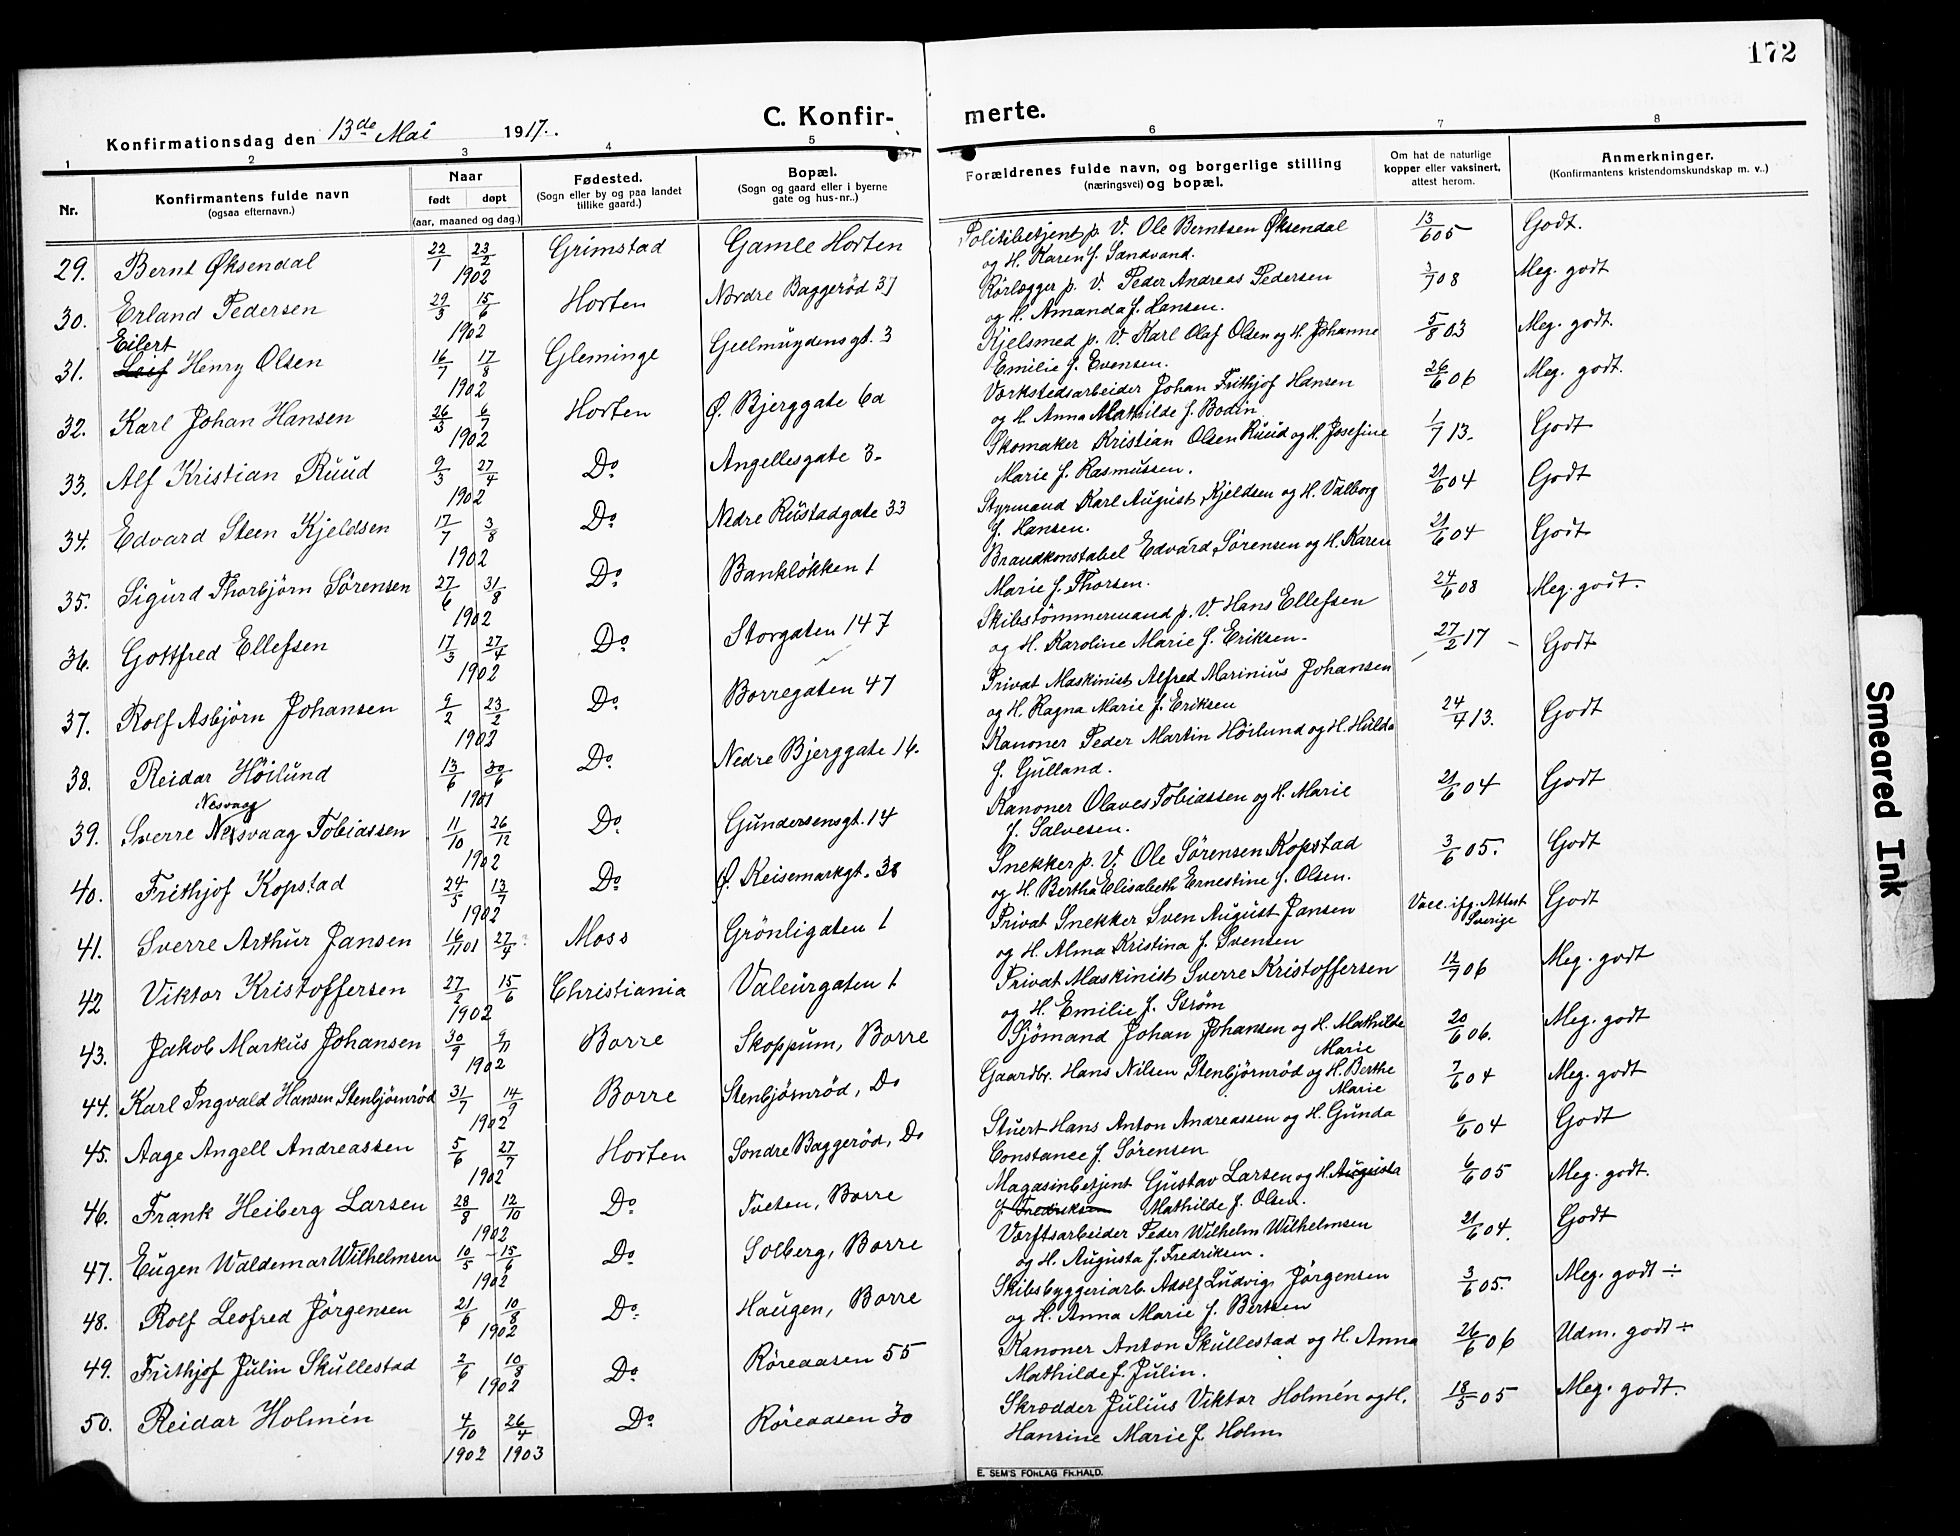 172
C. Konfir- merte.
Konfirmationsdag den 13de Mai 1917.
1 2 3 4 5 6 7 8
Nr.
Konfirmantens fulde navn
(ogsaa efternavn.)
Naar
født døpt
(aar, maaned og dag.)
Fødested.
(Sogn eller by og paa landet
tillike gaard.)
Bopæl.
(Sogn og gaard eller i byerne
gate og hus-nr..)
Forældrenes fulde navn, og borgerlige stilling
(næringsvei) og bopæl.
Om hat de naturlige
kopper eller vaksinert,
attest herom.
Anmerkninger.
(Konfirmantens kristendomskundskap m. v..)
29. Bernt Øksendal 22/1 23/2 1902 Grimstad Gamle Horten Politibetjent p. V. Ole Berntsen Øksendal 13/6 05 Godt.
og H. Karen f. Sandvand.
30. Erland Pedersen 29/3 15/6 1902 Horten Nordre Baggerød 37 Rørlægger p. V. Peder Andreas Pedersen 7 08 Meg. godt
og H. Amanda f. Hansen.
Eilert
31. Leif Henry Olsen 16/7 17/8 1902 Gleminge Geelmuydensgt. 3 Kjelsmed p. V. Karl Olaf Olsen og H. Johanne 5/8 03 Meg. godt.
Emilie f. Evensen.
32. Karl Johan Hansen 26/3 6/7 1902 Horten Ø. Bjerggate 6a Værkstedsarbeider Johan Frithjof Hansen 26/6 06 Meg. godt.
og H. Anna Mathilde f. Bodin
33. Alf Kristian Ruud 9/3 27/4 1902 Do Angellesgate 3. Skomaker Kristian Olsen Ruud og H. Josefine 1/7 13. Godt
Marie f. Rasmussen.
34. Edvard Steen Kjeldsen 17/7 3/8 1902 Do Nedre Rustadgate 33 Styrmand Karl August Kjeldsen og H. Valborg 21/6 04 Godt
f. Hansen.
35. Sigurd Thorbjörn Sörensen 27/6 31/8 1902 Do Bankløkken 1 Brandkonstabel Edvard Sørensen og H. Karen 21/6 04 Godt
Marie f. Thorsen.
36. Gottfred Ellefsen 17/3 27/4 1902 Do Storgaten 147 Skibstømmermand p. V. Hans Ellefsen 24/6 08 Meg. godt.
og H. Karoline Marie f. Eriksen.
37. Rolf Asbjörn Johansen 9/2 23/2 1902 Do Borregaten 47 Privat Maskinist Alfred Marinius Johansen 27/2 17 Godt
og H. Ragna Marie f. Eriksen
38. Reidar Höilund 13/6 30/6 1901 Do Nedre Bjerggate 16. Kanoner Peder Martin Höilund og H. Hulda 24/4 13. Godt
f. Gulland.
Nesvaag
39. Sverre Nesvaag Tobiassen 11/10 26/12 1902 Do Gundersensgt. 14 Kanoner Olaves Tobiassen og H. Marie 21/6 04 Godt
f. Salvesen.
40. Frithjof Kopstad 24/5 13/7 1902 Do Ø. Keisemarkgt. 38 Snekker p. V. Ole Sørensen Kopstad 3/6 05. Godt
og H. Bertha Elisabeth Ernestine f. Olsen.
41. Sverre Arthur Jansen 16/11 01 27/4 Moss Grönligaten 1 Privat Snekker Sven August Jansen Vacc. ifg. Attest Sverige Godt
og H. Alma Kristina f. Svensen
42 Viktor Kristoffersen 27/2 15/6 1902 Christiania Valeurgaten 1 Privat Maskinist Sverre Kristoffersen 12/7 06 Meg. godt
og H. Emilie f. Strøm
43. Jakob Markus Johansen 30/9 9/11 1902 Borre Skoppum, Borre Sjömand Johan Johansen og H. Mathilde 20/6 06. Meg. godt
Marie
44. Karl Ingvald Hansen Stenbjörnröd 31/7 14/9 1902 Borre Stenbjørnrød, Do Gaardbr. Hans Nilsen Stenbjørnrød og H. Berthe 7/6 04 Meg. godt
Marie
45. Aage Angell Andreassen 5/6 27/7 1902 Horten Sondre Baggerød, Do Stuert Hans Anton Andreassen og H. Gunda 6/6 04 Godt
Constance f. Sørensen
46. Frank Heiberg Larsen 28/8 12/10 1902 Do Tveten, Borre Magasinbetjent Gustav Larsen og H. Augusta 6/6 05 Meg. godt.
f. Fredriksen Mathilde f. Olsen.
47. Eugen Waldemar Wilhelmsen 10/5 15/6 1902 Do Solberg, Borre Værftsarbeider Peder Wilhelm Wilhelmsen 21/6 04. Godt
og H. Augusta f. Fredriksen.
48. Rolf Leofred Jörgensen 21/6 10/8 1902 Do Haugen, Borre Skibsbyggeriarb. Adolf Ludvig Jörgensen 3/6 05. Meg. godt ÷
og H. Anna Marie f. Bertsen
49. Frithjof Julin Skullestad 2/6 10/8 1902 Do Røreaasen 55 Kanoner Anton Skullestad og H. Anna 26/6 06 Udm. godt ÷
Mathilde f. Julin.
50. Reidar Holmén 4/10 1902 26/4 1903 Do Røreaasen 30 Skrædder Julius Viktor Holmén og H. 18/5 05 Meg. godt.
Hansine Marie f. Holm
E. SEM'S FORLAG FR.HALD.
Smeared Ink